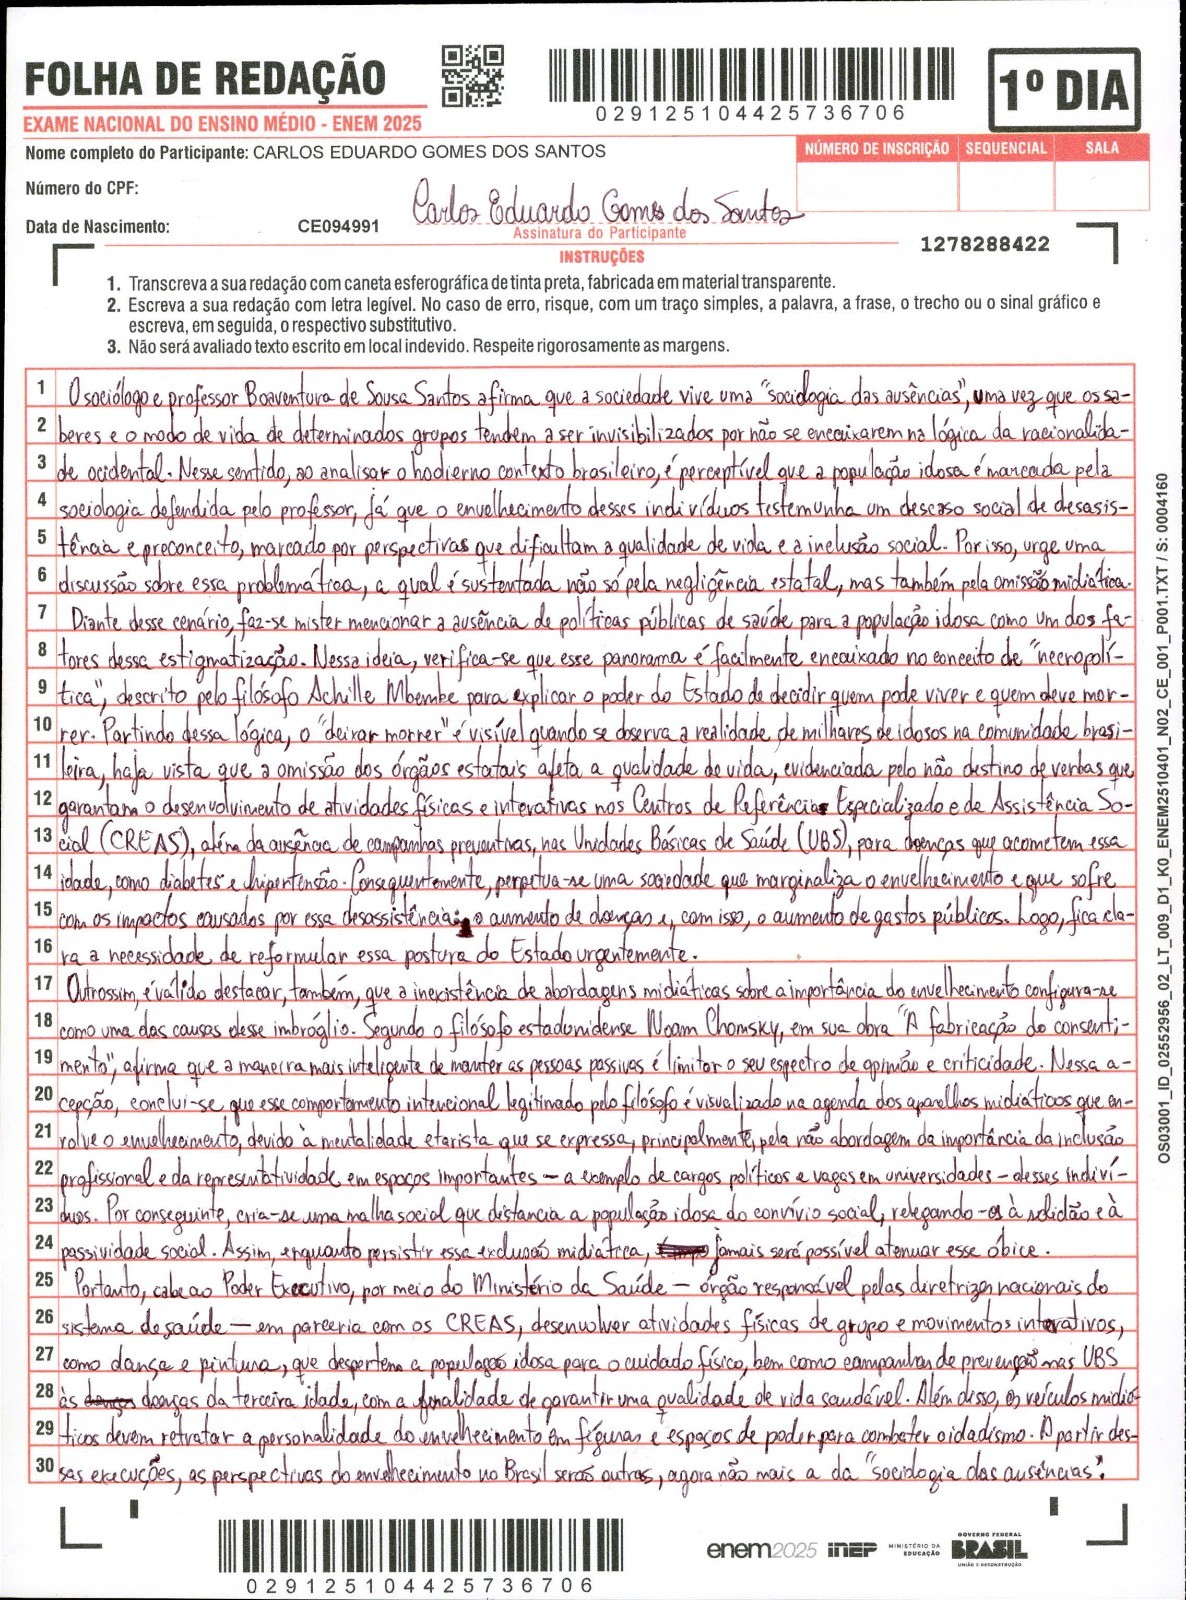 FOLHA DE REDAÇÃO
EXAME NACIONAL DO ENSINO MÉDIO - ENEM 2025
029125104425736706
1º DIA
Nome completo do Participante: CARLOS EDUARDO GOMES DOS SANTOS
NÚMERO DE INSCRIÇÃO
SEQUENCIAL
SALA
Número do CPF:
Carlos Eduardo Gomes dos Santos
Data de Nascimento:
CE094991
Assinatura do Participante
1278288422
INSTRUÇÕES
1. Transcreva a sua redação com caneta esferográfica de tinta preta, fabricada em material transparente.
2. Escreva a sua redação com letra legível. No caso de erro, risque, com um traço simples, a palavra, a frase, o trecho ou o sinal gráfico e
escreva, em seguida, o respectivo substitutivo.
3. Não será avaliado texto escrito em local indevido. Respeite rigorosamente as margens.
1 O sociólogo e professor Boaventura de Sousa Santos afirma que a sociedade vive uma "sociologia das ausências", uma vez que os sa-
2 beres e o modo de vida de determinados grupos tendem a ser invisibilizados por não se encaixarem na lógica da racionalida-
3 de ocidental. Nesse sentido, ao analisar o hodierno contexto brasileiro, é perceptível que a população idosa é marcada pela
4 sociologia defendida pelo professor, já que o envelhecimento desses indivíduos testemunha um descaso social de desasis-
5 tência e preconceito, marcado por perspectivas que dificultam a qualidade de vida e a inclusão social. Por isso, urge uma
6 discussão sobre essa problemática, a qual é sustentada não só pela negligência estatal, mas também pela omissão midiática.
7 Diante desse cenário, faz-se mister mencionar a ausência de políticas públicas de saúde para a população idosa como um dos fa-
8 tores dessa estigmatização. Nessa ideia, verifica-se que esse panorama é facilmente encaixado no conceito de "necropolí-
9 tica", descrito pelo filósofo Achille Mbembe para explicar o poder do Estado de decidir quem pode viver e quem deve mor-
10 rer. Partindo dessa lógica, o "deixar morrer" é visível quando se observa a realidade de milhares de idosos na comunidade brasi-
11 leira, haja vista que a omissão dos órgãos estatais afeta a qualidade de vida, evidenciada pelo não destino de verbas que
12 garantam o desenvolvimento de atividades físicas e interativas nos Centros de Referência Especializado e de Assistência So-
13 cial (CREAS), além da ausência de campanhas preventivas, nas Unidades Básicas de Saúde (UBS), para doenças que acometem essa
14 idade, como diabetes e hipertensão. Consequentemente, perpetua-se uma sociedade que marginaliza o envelhecimento e que sofre
15 com os impactos causados por essa desassistência: o aumento de doenças e, com isso, o aumento de gastos públicos. Logo, fica cla-
16 ra a necessidade de reformular essa postura do Estado urgentemente.
17 Outrossim, é válido destacar, também, que a inexistência de abordagens midiáticas sobre a importância do envelhecimento configura-se
18 como uma das causas desse imbróglio. Segundo o filósofo estadunidense Noam Chomsky, em sua obra "A fabricação do consenti-
19 mento", afirma que a maneira mais inteligente de manter as pessoas passivas é limitar o seu espectro de opinião e criticidade. Nessa a-
20 cepção, conclui-se que esse comportamento intencional legitimado pelo filósofo é visualizado na agenda dos aparelhos midiáticos que en-
21 volve o envelhecimento, devido à mentalidade etarista que se expressa, principalmente, pela não abordagem da importância da inclusão
22 profissional e da representatividade em espaços importantes – a exemplo de cargos políticos e vagas em universidades – desses indiví-
23 duos. Por conseguinte, cria-se uma malha social que distancia a população idosa do convívio social, relegando-os à solidão e à
24 passividade social. Assim, enquanto persistir essa exclusão midiática, jamais será possível atenuar esse óbice.
25 Portanto, cabe ao Poder Executivo, por meio do Ministério da Saúde – órgão responsável pelas diretrizes nacionais do
26 sistema de saúde – em parceria com os CREAS, desenvolver atividades físicas de grupo e movimentos interativos,
27 como dança e pintura, que despertem a população idosa para o cuidado físico, bem como campanhas de prevenção nas UBS
28 às doenças da terceira idade, com a finalidade de garantir uma qualidade de vida saudável. Além disso, os veículos midiá-
29 ticos devem retratar a personalidade do envelhecimento em figuras e espaços de poder para combater o idadismo. A partir des-
30 sas execuções, as perspectivas do envelhecimento no Brasil serão outras, agora não mais a da "sociologia das ausências".
OS03001_ID_02552956_02_LT_0009_D1_K0_ENEM2510401_N02_CE_001_P001.TXT / S: 0004160
029125104425736706
enem2025
inep
MINISTÉRIO DA
EDUCAÇÃO
GOVERNO FEDERAL
BRASIL
UNIÃO E RECONSTRUÇÃO